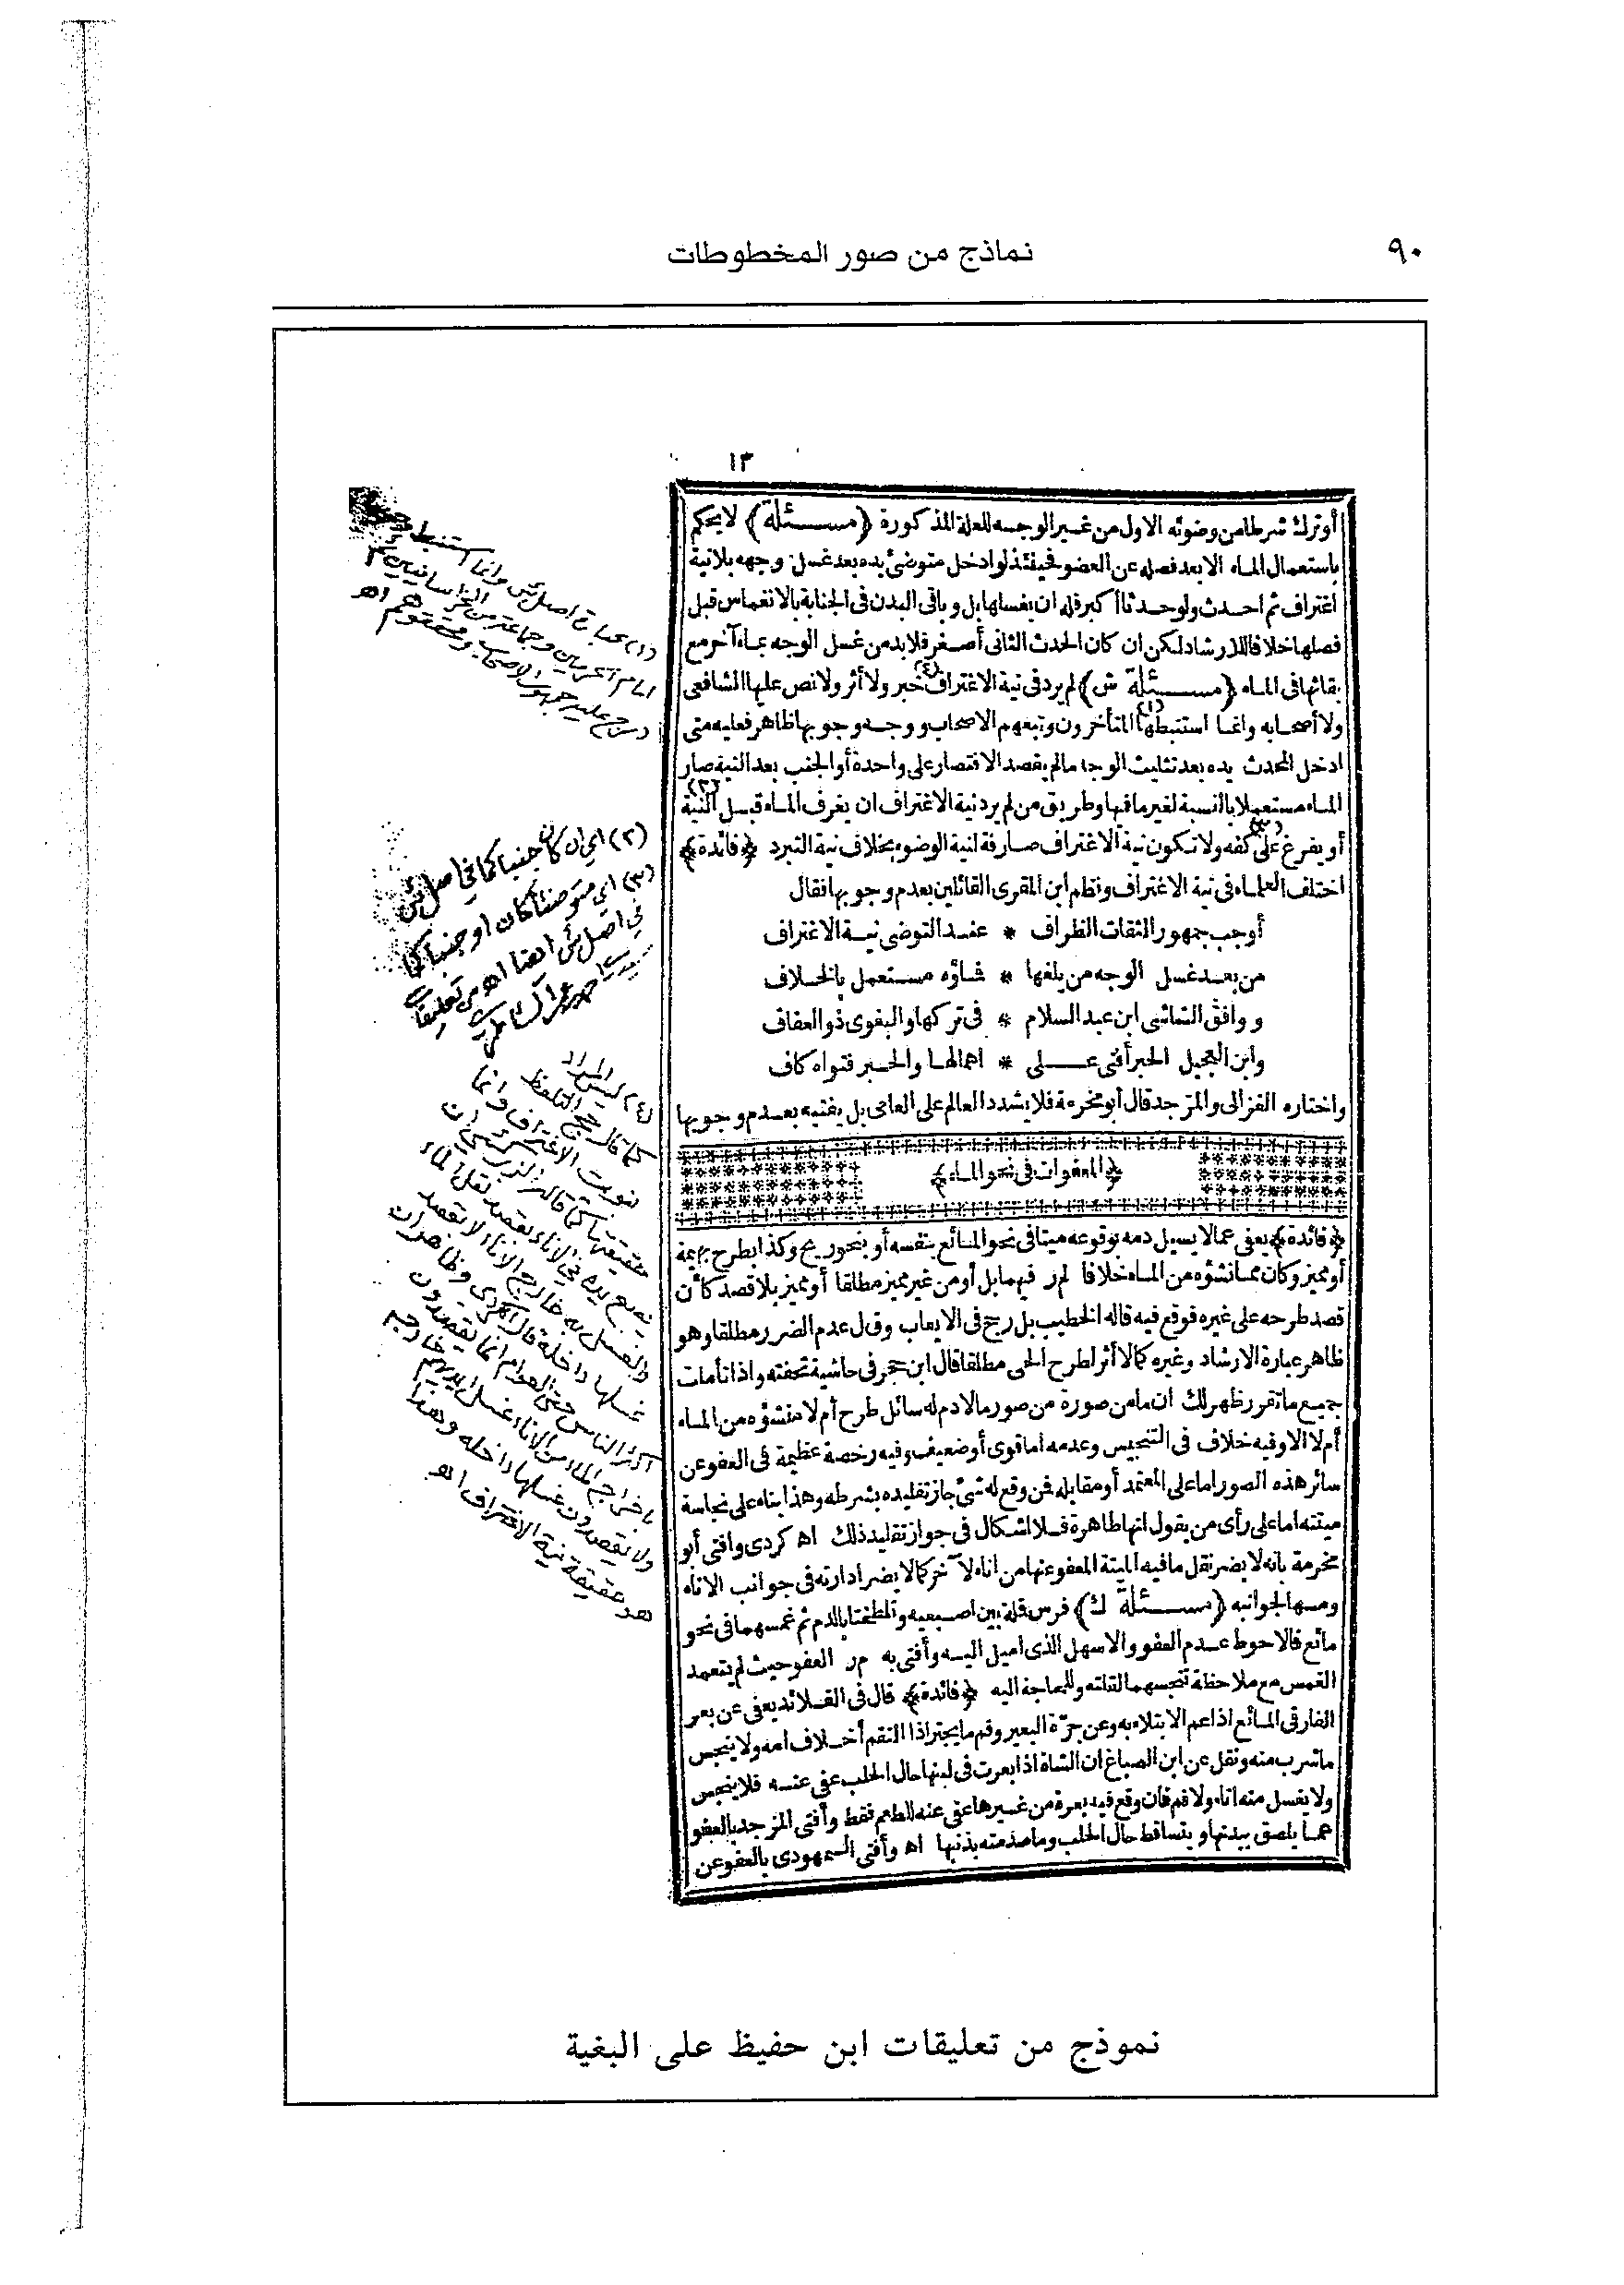 ٩٠
نماذج من صور المخطوطات
١٣
أو ترك شرطا من وضوئه الاول من غسير الوجسه للعلة المذكورة ﴿مسـئلة﴾ لا يحكم
باستعمال الماء الا بعد فصله عن العضو فحينئذ لو ادخل متوضئ يده بعد غسل وجهه بلا نية
اغتراف ثم احدث ولو حدثا أكبر فله ان يغسلها بل وباقى البدن فى الجنابة بالانغماس قبل
فصلها خلافا للارشاد لكن ان كان الحدث الثانى أصغر فلا بد من غسل الوجه بماء آخر مع
بقائها فى الماء ﴿مسـئلة ش﴾ لم يرد فى نية الاغتراف (٤) خبر ولا أثر ولا نص عليها الشافعى
ولا أصحابه وانما استنبطها (١) المتأخرون وتبعهم الاصحاب ووجه وجوبها ظاهر فعليه متى
ادخل المحدث يده بعد تثليث الوجه ما لم يقصد الاقتصار على واحدة أو الجنب بعد النية صار
الماء مستعملا بالنسبة لغير ما فيها وطريق من لم يرد نية الاغتراف ان يغرف الماء قبل النية (٢)
أو يفرغ على (٣) كفه ولا تكون نية الاغتراف صارفة لنية الوضوء بخلاف نية التبرد ﴿فائدة﴾
اختلف العلماء فى نية الاغتراف ونظم ابن المقرى القائلين بعدم وجوبها فقال
أوجب جمهور الثقات الظراف * عند التوضى نية الاغتراف
من بعد غسل الوجه من يلغها * فماؤه مستعمل بالخلاف
ووافق الشاشى ابن عبد السلام * فى تركها والبغوى ذو العفاف
وابن العجيل الحبر أفتى على * اهمالها والحبر فتواه كاف
واختاره الغزالى والمزجد قال أبو مخرمة فلا يشدد العالم على العامى بل يفتيه بعدم وجوبها
﴿المعفوات فى نحو الماء﴾
﴿فائدة﴾ يعفى عما لا يسيل دمه بوقوعه ميتا فى نحو المائع بنفسه أو بنحو ريح وكذا بطرح بهيمة
أو مميز وكان مما نشؤه من الماء خلافا لم ر فيهما بل أو من غير مميز مطلقا أو مميز بلا قصد كأن
قصد طرحه على غيره فوقع فيه قاله الخطيب بل رجح فى الايعاب وق ل عدم الضرر مطلقا وهو
ظاهر عبارة الارشاد وغيره كما لا أثر لطرح الحى مطلقا قال ابن حجر فى حاشية تحفته واذا تأملت
جميع ما تقرر ظهر لك ان ما من صورة من صور ما لا دم له سائل طرح أم لا منشؤه من الماء
أم لا الا وفيه خلاف فى التنجيس وعدمه اما قوى أو ضعيف وفيه رخصة عظيمة فى العفو عن
سائر هذه الصور اما على المعتمد أو مقابله فمن وقع له شئ جاز تقليده بشرطه وهذا بناء على نجاسة
ميتته اما على رأى من يقول انها طاهرة فلا اشكال فى جواز تقليد ذلك اه كردى وافتى أبو
مخرمة بانه لا يضر نقل ما فيه الميتة المعفو عنها من اناء لآخر كما لا يضر ادارته فى جوانب الاناء
ومسها لجوانبه ﴿مسـئلة ك﴾ فرس قملة بين اصبعيه وتلطختا بالدم ثم غمسهما فى نحو
مائع فالاحوط عدم العفو والاسهل الذى اميل اليه وأفتى به م ر العفو حيث لم يتعمد
الغمس مع ملاحظة تنجسهما لقلته وللحاجة اليه ﴿فائدة﴾ قال فى القلائد يعفى عن بعر
الفار فى المائع اذا عم الابتلاء به وعن جرّة البعير وفم ما يجتر اذا التقم أخلاف امه ولا ينجس
ما شرب منه ونقل عن ابن الصباغ ان الشاة اذا بعرت فى لبنها حال الحلب عفى عنه فلا ينجس
ولا يغسل منه اناء ولا فم فان وقع فيه بعرة من غيرها عفى عنه للطعم فقط وأفتى المزجد بالعفو
عما يلصق ببدنها ويتساقط حال الحلب وما صدمته بذنبها اه وأفتى السمهودى بالعفو عن
(١) عبارة اصل ش وانما استنبطها
امام الحرمين وجماعة من الخراسانيين
درج عليه جمهور الاصحاب ومتبعوهم اهـ
(٢) اي ان كان جنبا كما في اصل ش
(٣) اي متوضئا كان او جنبا كما
في اصل ش ايضا اهـ من تعليقات
(٤) ليس المراد
كما قال حج التلفظ
بنويت الاغتراف وانما
حقيقتها كما قاله الزركشي ان
يضع يده في الاناء بقصد نقل الماء
والغسل به خارج الاناء لا بقصد
غسلها داخله قال الكردي وظاهر ان
اكثر الناس حتى العوام انما يقصدون
باخراج الماء من الاناء غسل ايديهم خارجه
ولا يقصدون غسلها داخله وهذا
هو حقيقة نية الاغتراف اهـ
نموذج من تعليقات ابن حفيظ على البغية